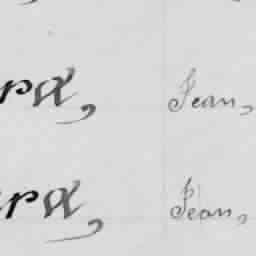 ra, Jean,
ra, Jean,